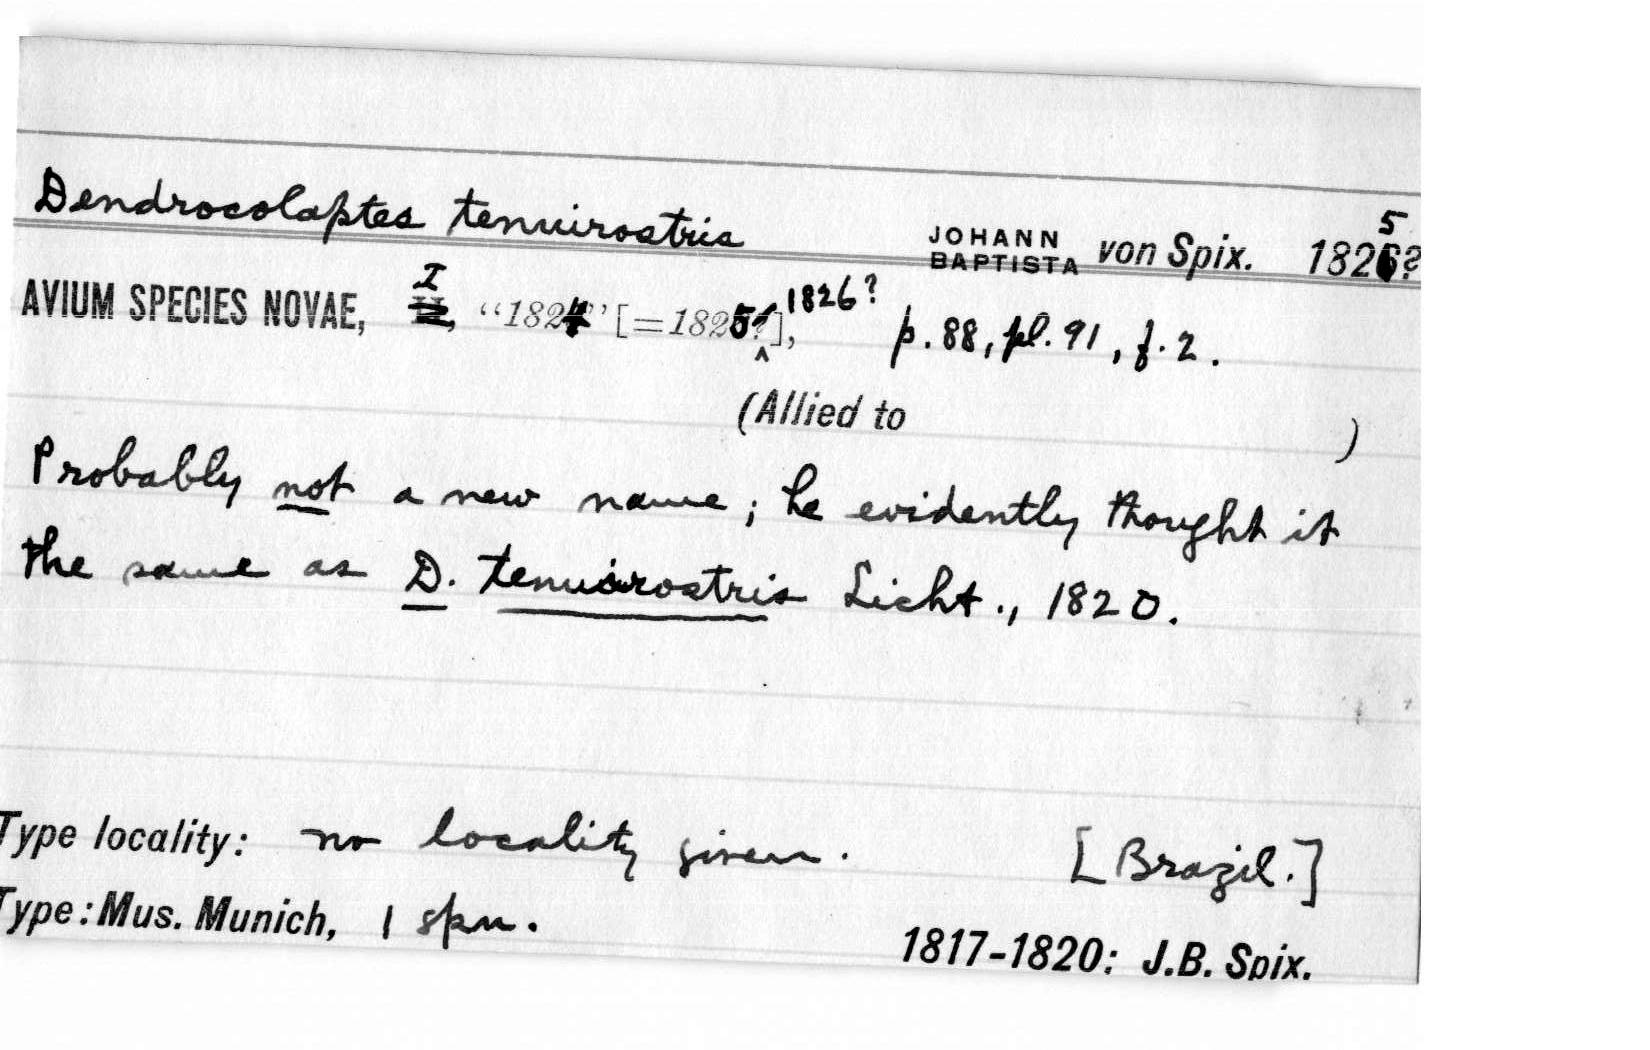 Dendrocolaptes tenuirostris JOHANN BAPTISTA von Spix. 1825?
AVIUM SPECIES NOVAE, I, "1824" [=1825?], 1826? p. 88, pl. 91, f. 2.
(Allied to )
Probably not a new name; he evidently thought it
the same as D. tenuirostris Licht., 1820.
Type locality: no locality given. [Brazil.]
Type: Mus. Munich, 1 spm.
1817-1820: J.B. Spix.